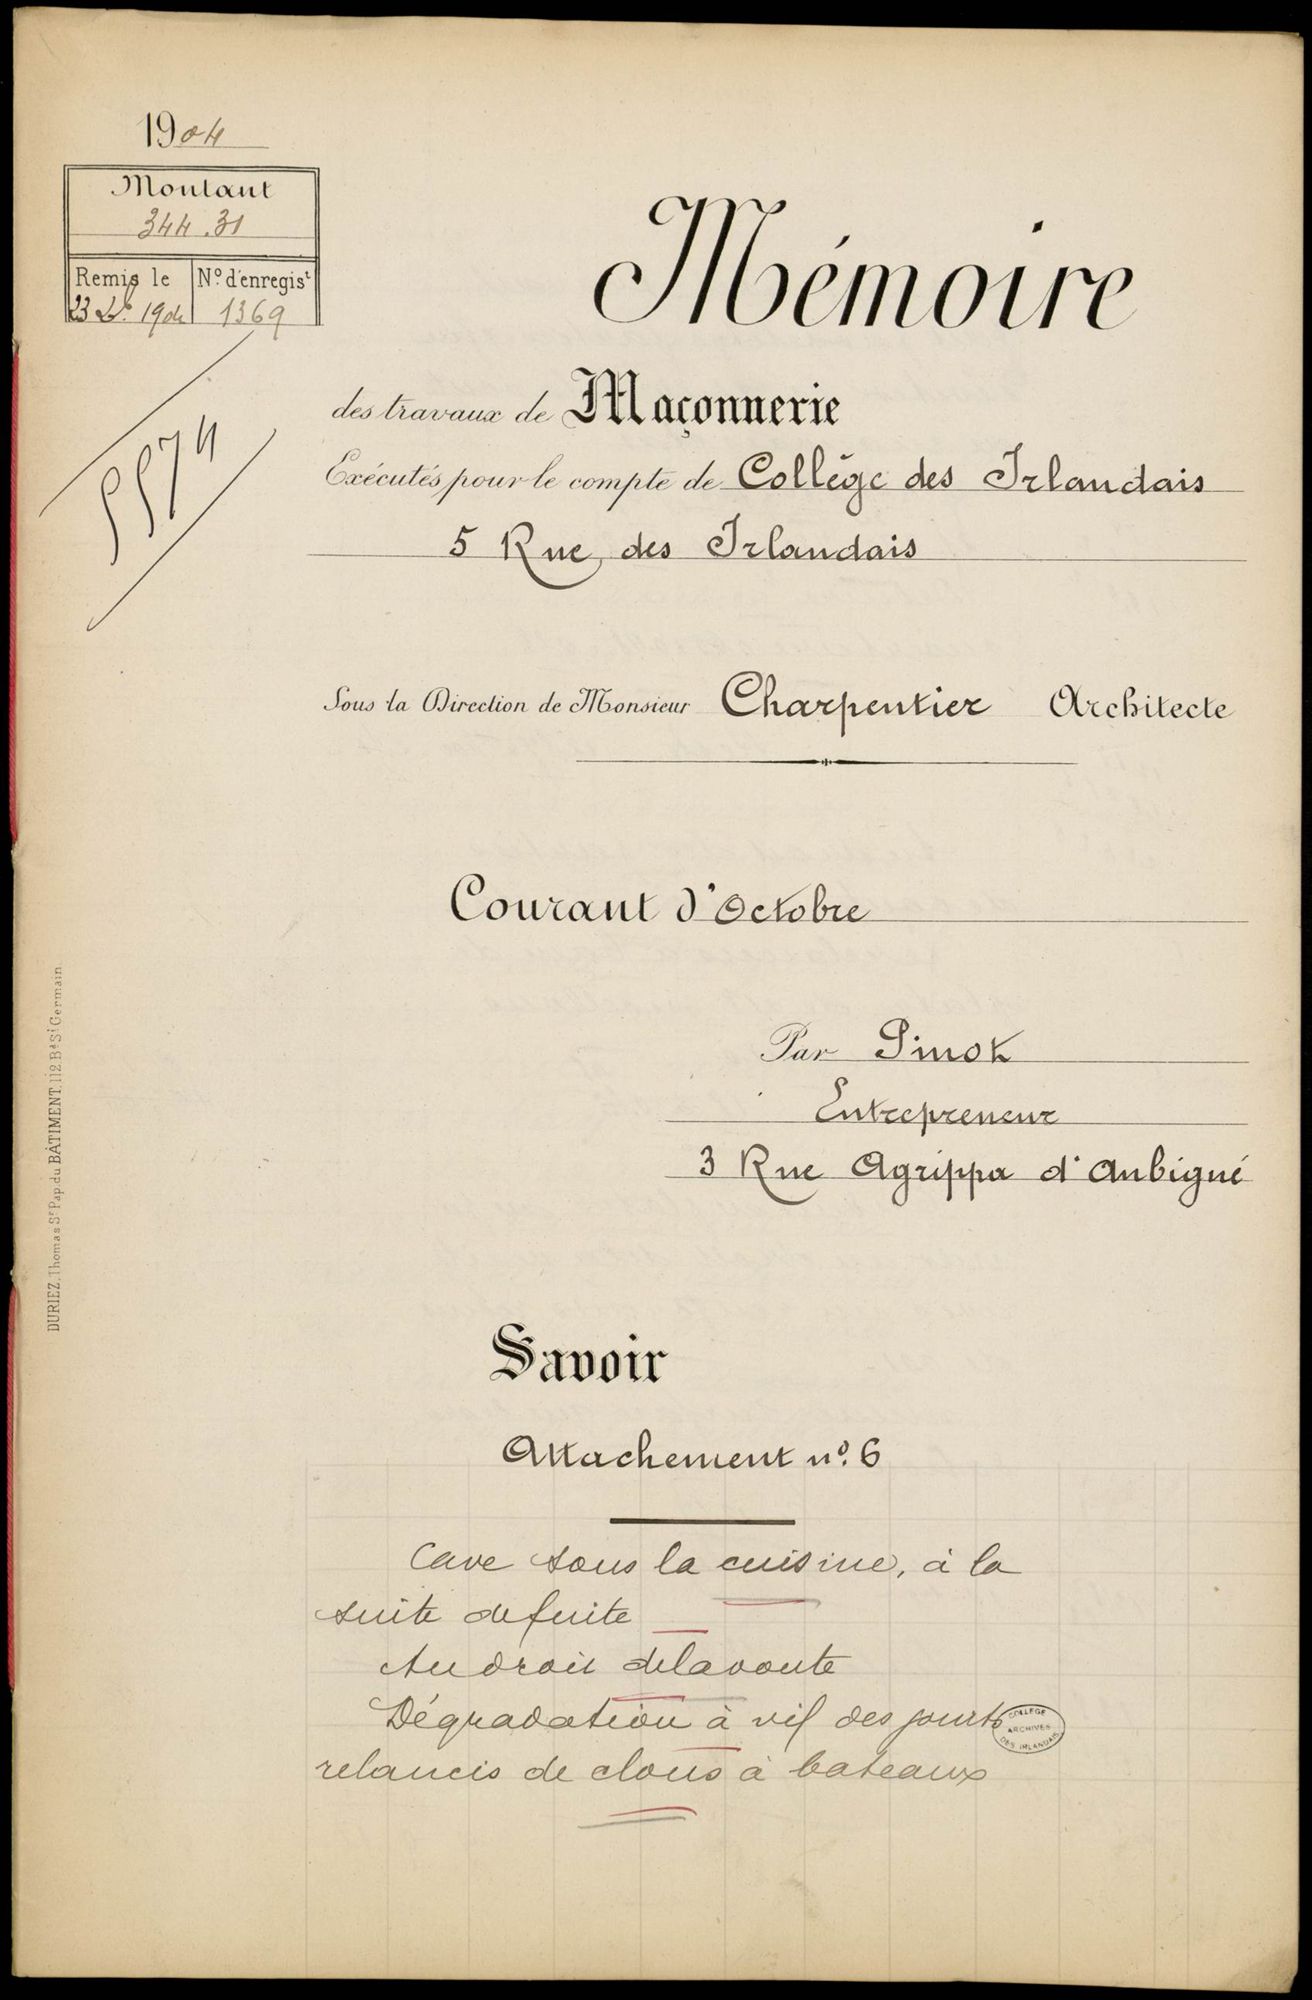 1904
Montant
344.31
Remis le
Nº d'enregist
23 Xbre 1904
1369
5574
Mémoire
des travaux de Maçonnerie
Exécutés pour le compte de Collège des Irlandais
5 Rue des Irlandais
Sous la Direction de Monsieur Charpentier Architecte
Courant d'Octobre
Par Pinot
Entrepreneur
3 Rue Agrippa d'Aubigné
DURIEZ, Thomas Sr Pap. du BÂTIMENT, 112 Bd St Germain
Savoir
Attachement nº. 6
Cave sous la cuisine, à la
suite de fuite
Au droit de la voute
Dégradation à vif des joints
relancis de clous à bateaux
COLLEGE
ARCHIVES
DES IRLANDAIS